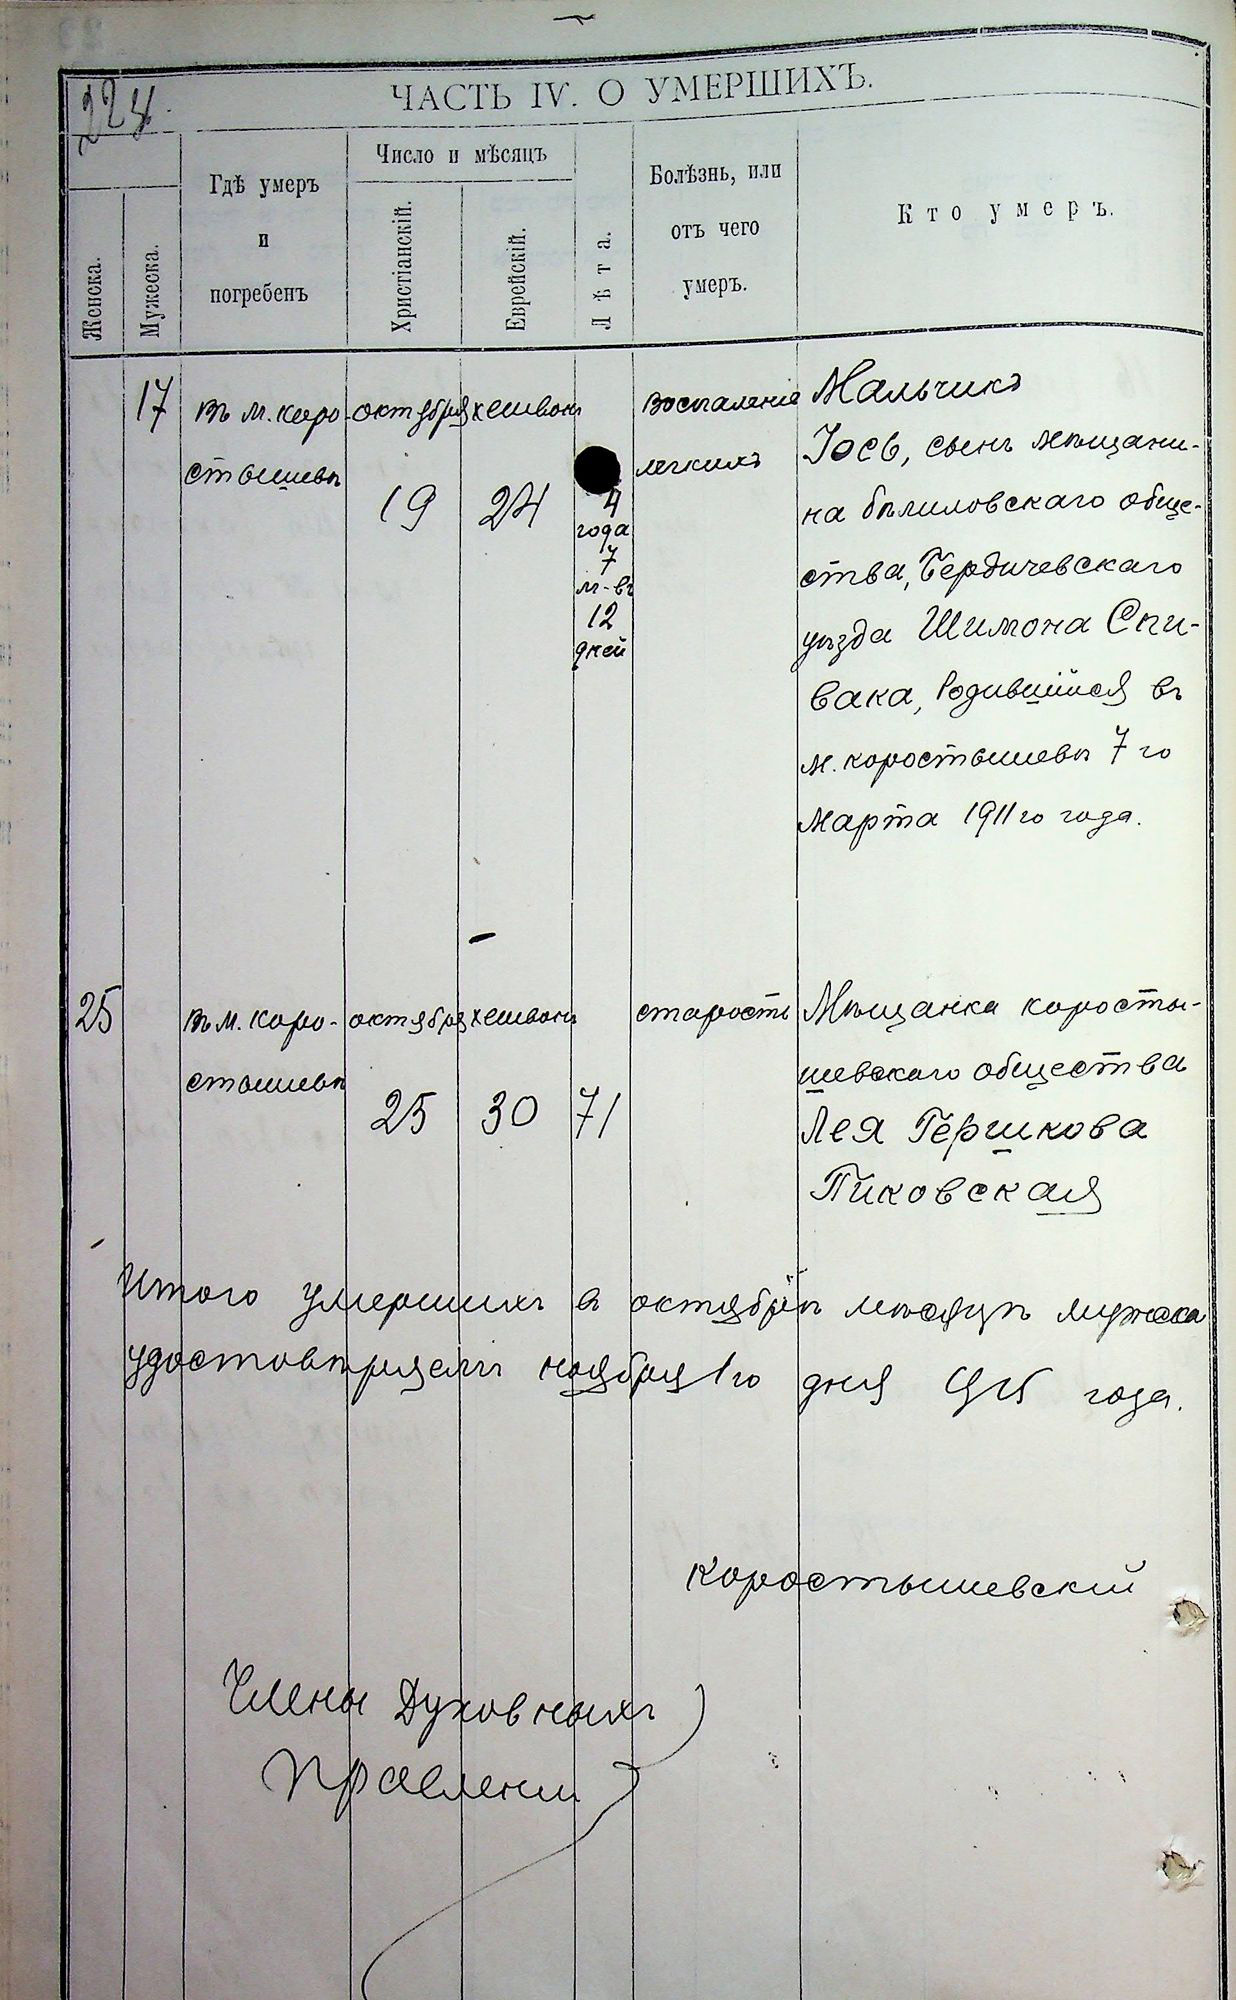 224.
ЧАСТЬ IV. О УМЕРШИХЪ.
Женска.
Мужеска.
Гдѣ умеръ
и
погребенъ
Число и мѣсяцъ
Христіанскій.
Еврейскій.
Лѣта.
Болѣзнь, или
отъ чего
умеръ.
Кто умеръ.
17
въ м. Коро-
стышевѣ
октября
19
хешвонъ
24
4
года
7
м-въ
12
дней
Воспаленіе
легкихъ
Мальчикъ
Іось, сынъ мѣщани-
на бѣлиловскаго обще-
ства, Бердичевскаго
уѣзда Шимона Спи-
вака, Родившійся въ
м. Коростышевѣ 7го
Марта 1911го года.
25
въ м. Коро-
стышевѣ
октября
25
хешвонъ
30
71
старость
Мѣщанка коросты-
шевскаго общества
Лея Гершкова
Пиковская
Итого умершихъ въ октябрѣ мѣсяцѣ мужеска
удостовѣряемъ ноября 1го дня 915 года.
Коростышевскій
Члены Духовныхъ
Правленій